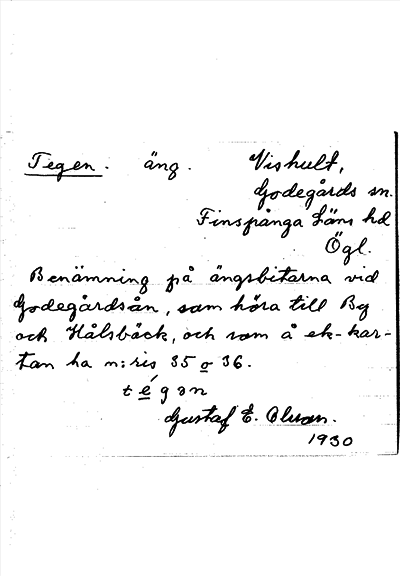 Tegen. äng. Vishult,
Godegårds sn.
Finspånga läns hd
Ögl.
Benämning på ängsbitarna vid
Godegårdsån, som höra till By
och Hålsbäck, och som å ek-kar-
tan ha n:ris 35 o 36.
t é g ə n
Gustaf E. Olsson.
1930